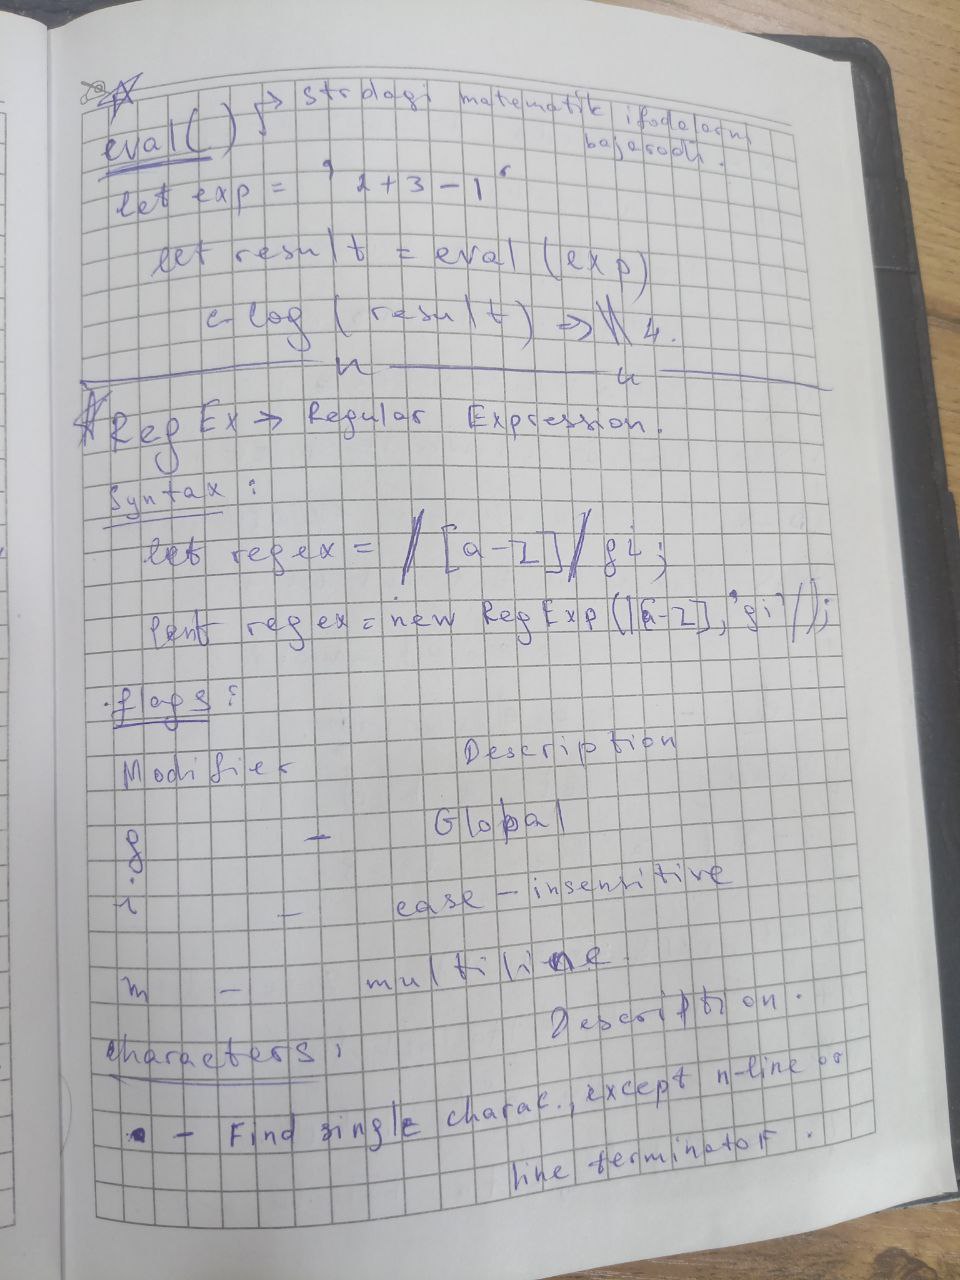 eval() → strdagi matematik ifodalarni
bajaradi.
let exp = '2+3-1'
let result = eval (exp)
c-log (result) => \\ 4.
RegEx → Regular Expression.
Syntax :
let regex = /[a-z]/gi;
regex = new RegExp (/[a-z], 'gi'/);
flags :
Modifier Description
g - Global
i - case-insensitive
m - multiline
characters : Description.
. - Find single charac., except n-line or
line terminator.